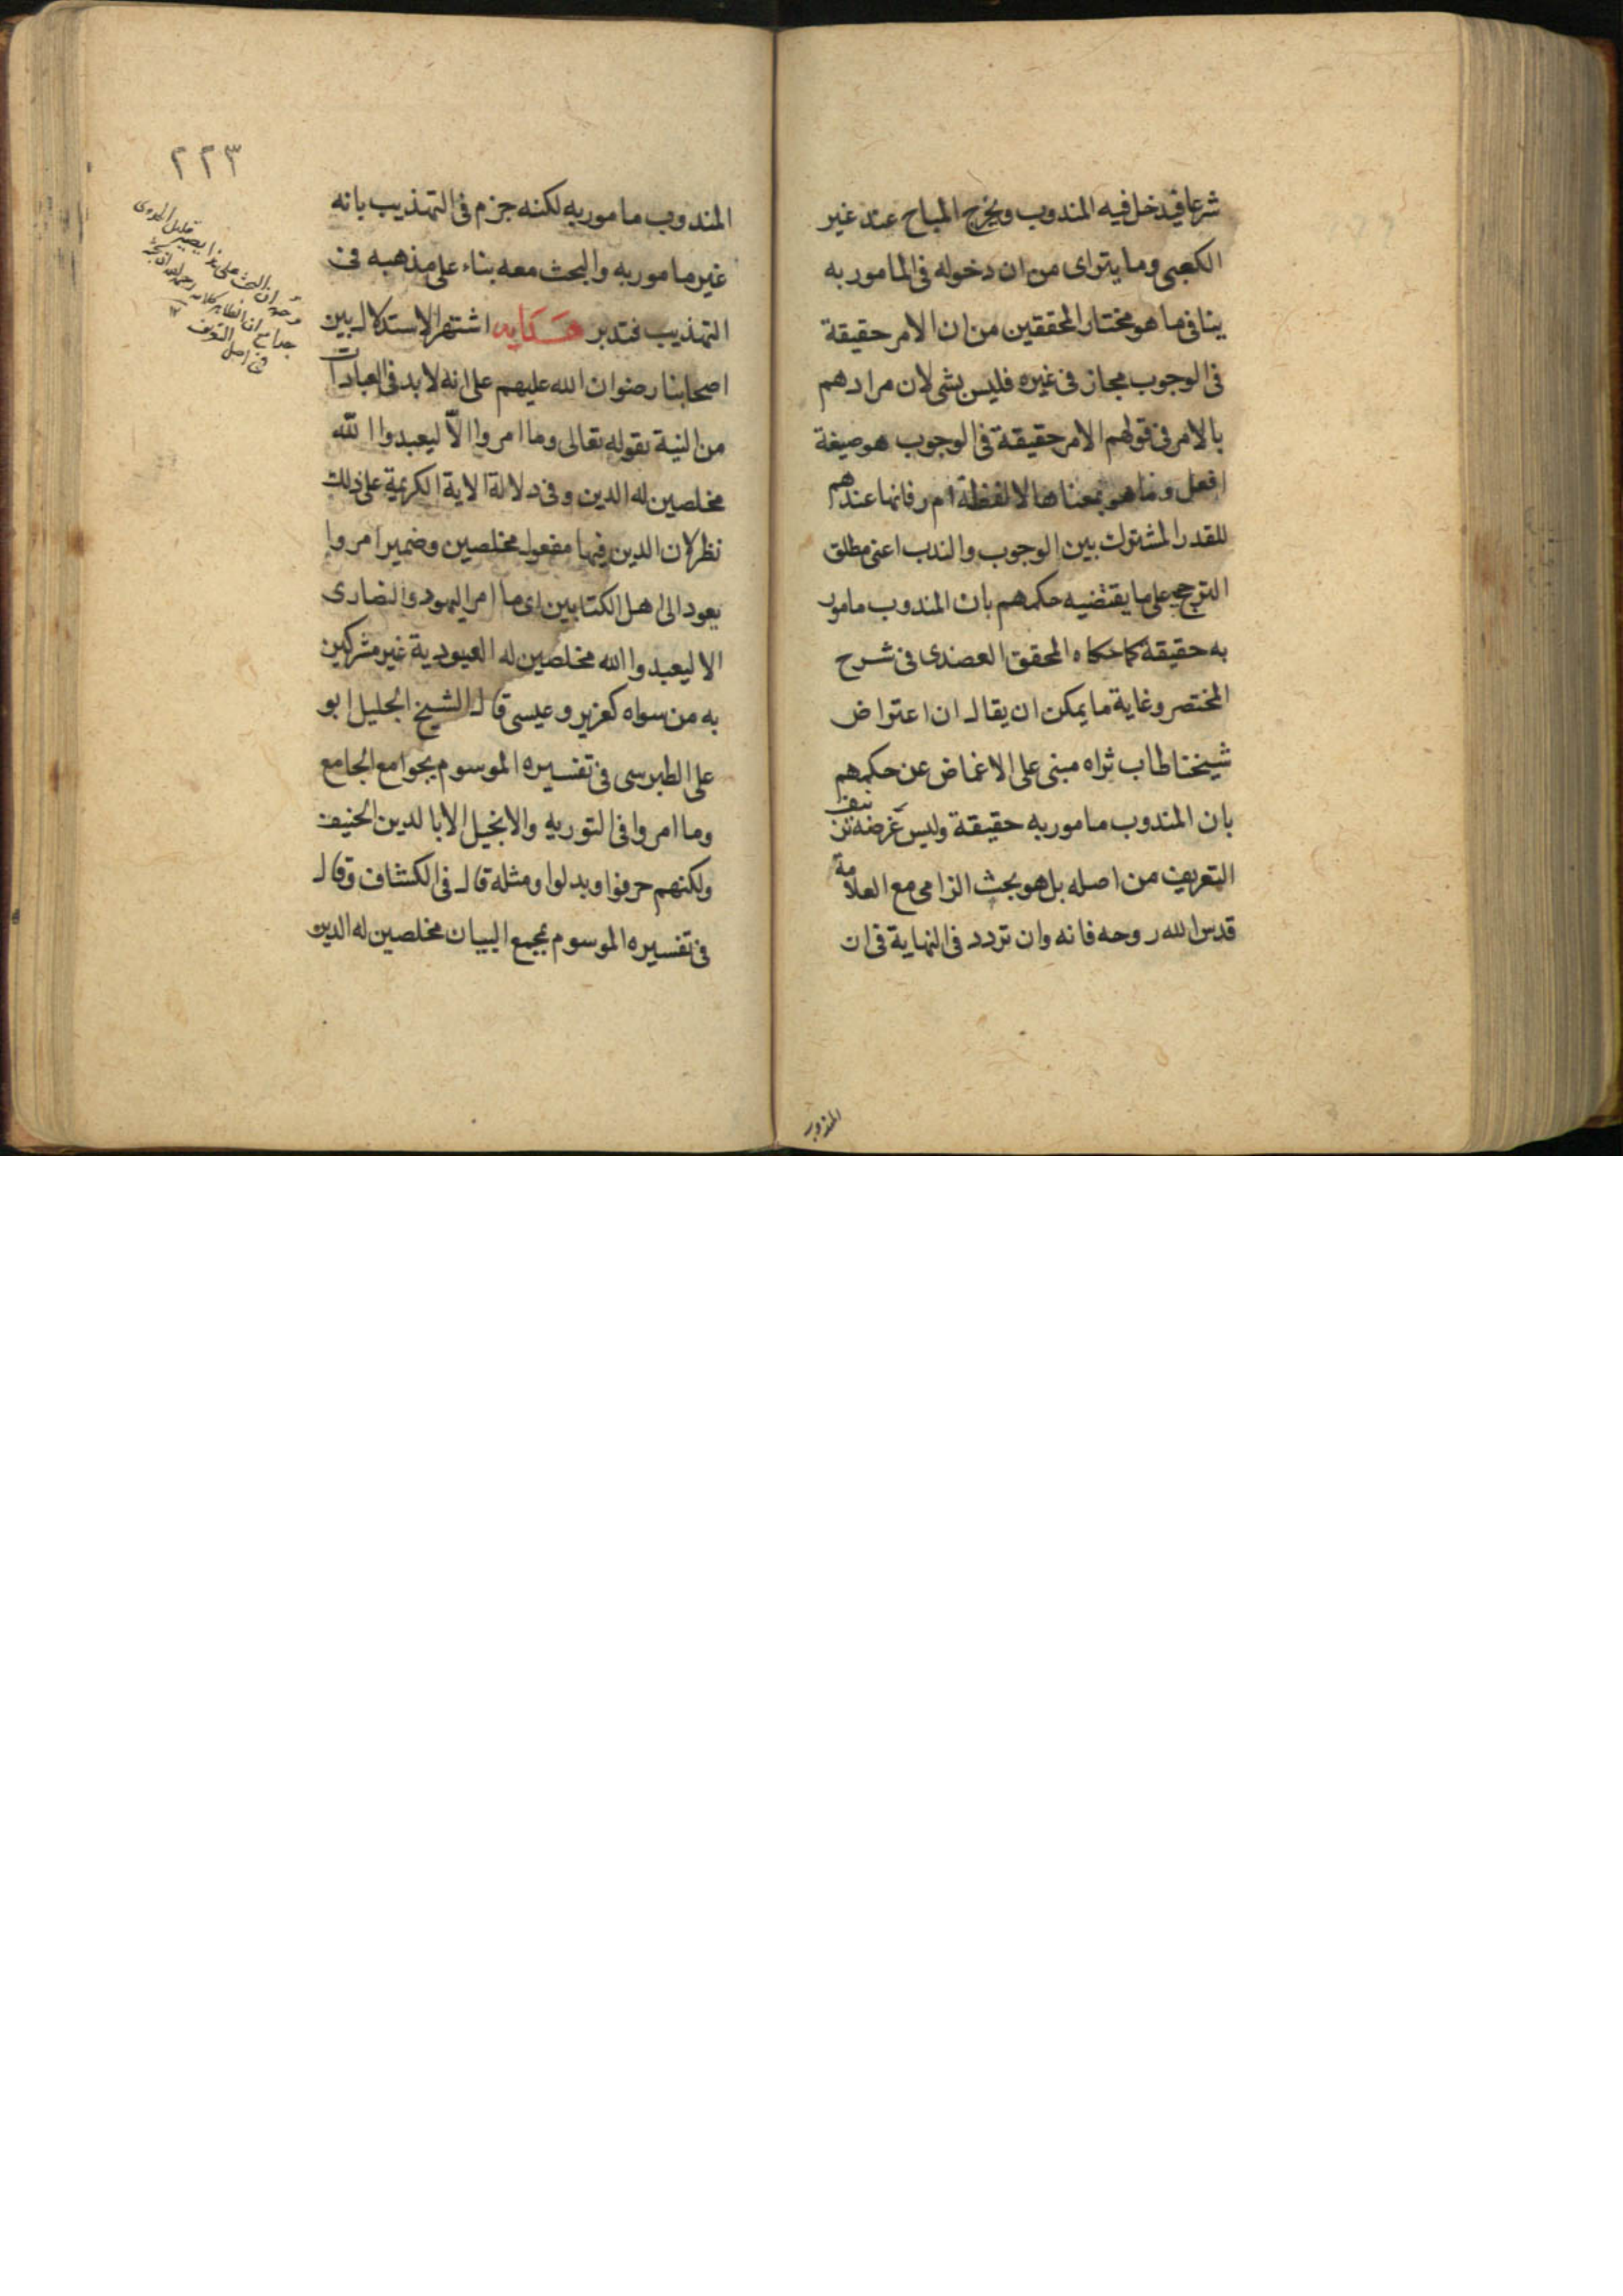 شرعا فيدخل فيه المندوب ويخرج المباح عند غير
الكعبى وما يتراى من ان دخوله فى المامور به
ينافى ما هو مختار المحققين من ان الامر حقيقة
فى الوجوب مجاز فى غيره فليس بشى لان مرادهم
بالامر فى قولهم الامر حقيقة فى الوجوب هو صيغة
افعل وما هو بمعناها لا لفظة ا م ر فانها عندهم
للقدر المشترك بين الوجوب والندب اعنى مطلق
الترجيح على ما يقتضيه حكمهم بان المندوب مامور
به حقيقة كما حكاه المحقق العضدى فى شرح
المختصر وغاية ما يمكن ان يقال ان اعتراض
شيخنا طاب ثراه مبنى على الاغماض عن حكمهم
بان المندوب مامور به حقيقة وليس غرضه
التعريف من اصله بل هو بحث الزامى مع العلامة
قدس الله روحه فانه وان تردد فى النهاية فى ان
المندوب
٢٢٣
المندوب مامور به لكنه جزم فى التهذيب بانه
غير مامور به والبحث معه بناء على مذهبه فى
التهذيب فتدبر هداية اشتهر الاستدلال بين
اصحابنا رضوان الله عليهم على انه لا بد فى العبادات
من النية بقوله تعالى وما امروا الّا ليعبدوا الله
مخلصين له الدين وفى دلالة الاية الكريمة على ذلك
نظر لان الدين فيها مفعول مخلصين وضمير امروا
يعود الى اهل الكتابين اى ما امر اليهود والنصارى
الا ليعبدوا الله مخلصين له العبودية غير مشركين
به من سواه كعزير وعيسى قال الشيخ الجليل ابو
على الطبرسى فى تفسيره الموسوم بجوامع الجامع
وما امروا فى التورية والانجيل الا بالدين الحنيف
ولكنهم حرفوا وبدلوا ومثله قال فى الكشاف وقال
فى تفسيره الموسوم بمجمع البيان مخلصين له الدين
ان البحث على هذا يصير قليل الجدوى
جدا مع ان الظاهر كلامه رحمه الله ان بحثه
فى اصل التعريف